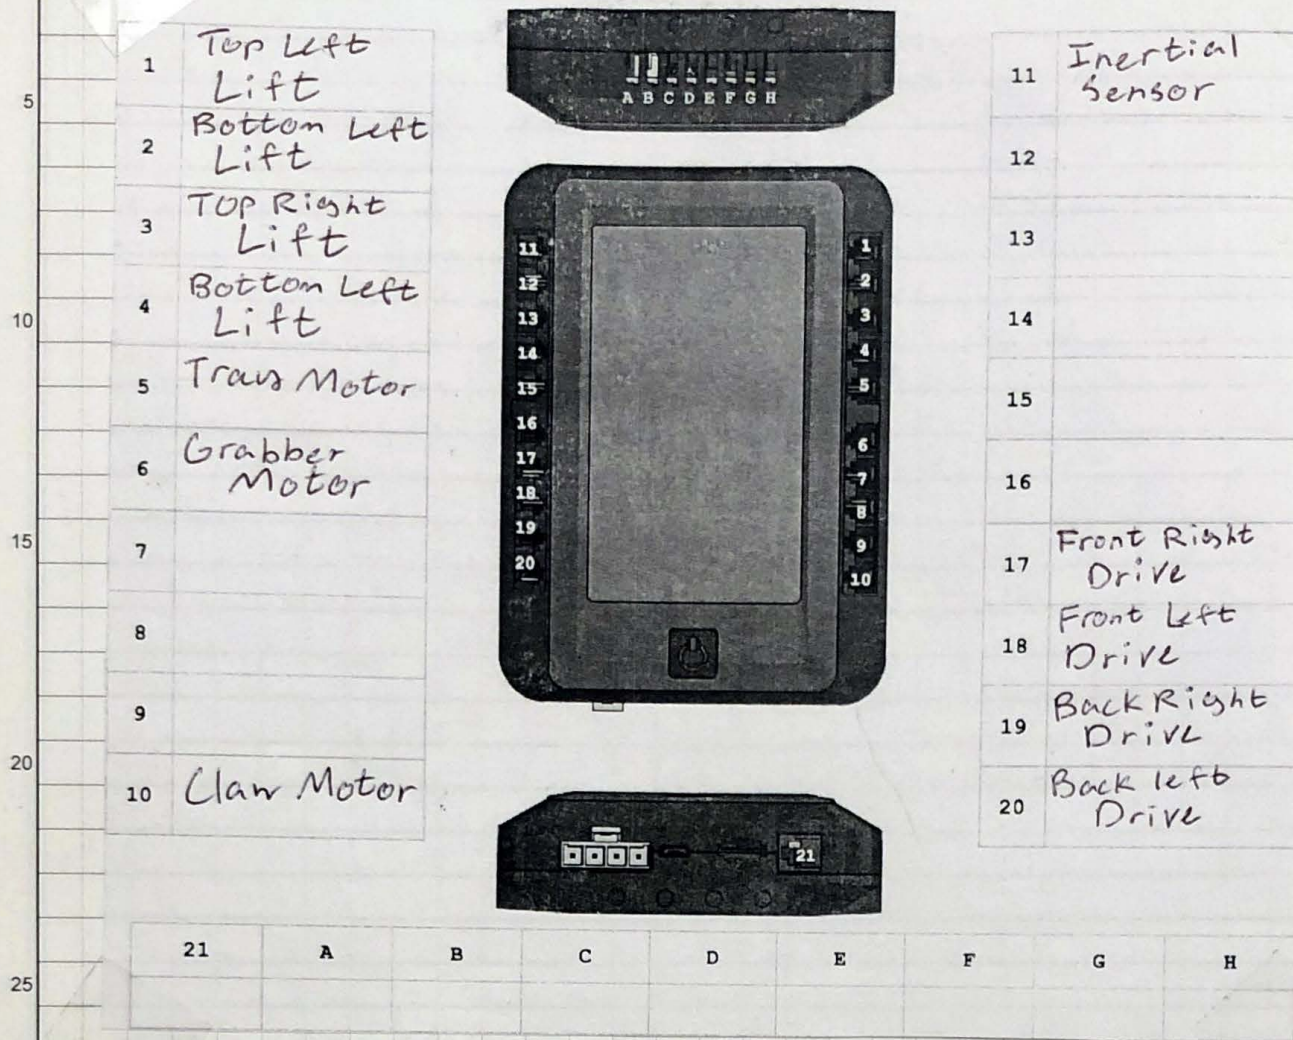 1 Top Left
Lift
2 Bottom Left
Lift
3 Top Right
Lift
4 Bottom Left
Lift
5 Tray Motor
6 Grabber
Motor
7
8
9
10 Claw Motor
A B C D E F G H
11 1
12 2
13 3
14 4
15 5
16
17 6
18 7
19 8
20 9
10
21
11 Inertial
Sensor
12
13
14
15
16
17 Front Right
Drive
18 Front Left
Drive
19 Back Right
Drive
20 Back left
Drive
21 A B C D E F G H
5
10
15
20
25